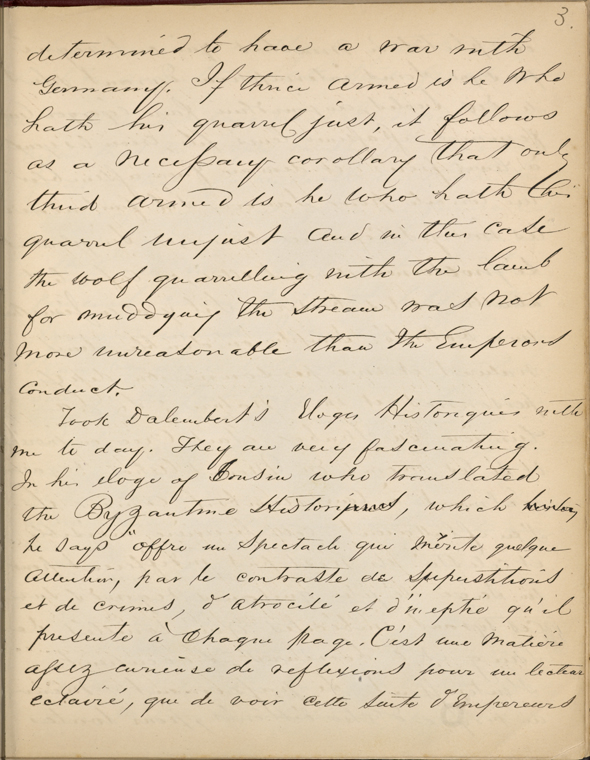 3.
determined to have a war with
Germany. If thrice armed is he who
hath his quarrel just, it follows
as a necessary corollary that only
third armed is he who hath his
quarrel unjust and in this case
the wolf quarrelling with the lamb
for muddying the stream was not
more unreasonable than the Emperors
conduct.
Took Dalembert's Eloges Historiques with
me to day. They are very fascinating.
In his eloge of Cousin who translated
the Byzantine Historians, which
he says "offre un spectacle qui mérite quelque
attention, par le contraste de superstitions
et de crimes, d'atrocité et d'ineptie qu'il
presente à chaque page. C'est une matière
assez curieuse de reflexions pour un lecteur
eclairé, que de voir cette suite d'Empereurs